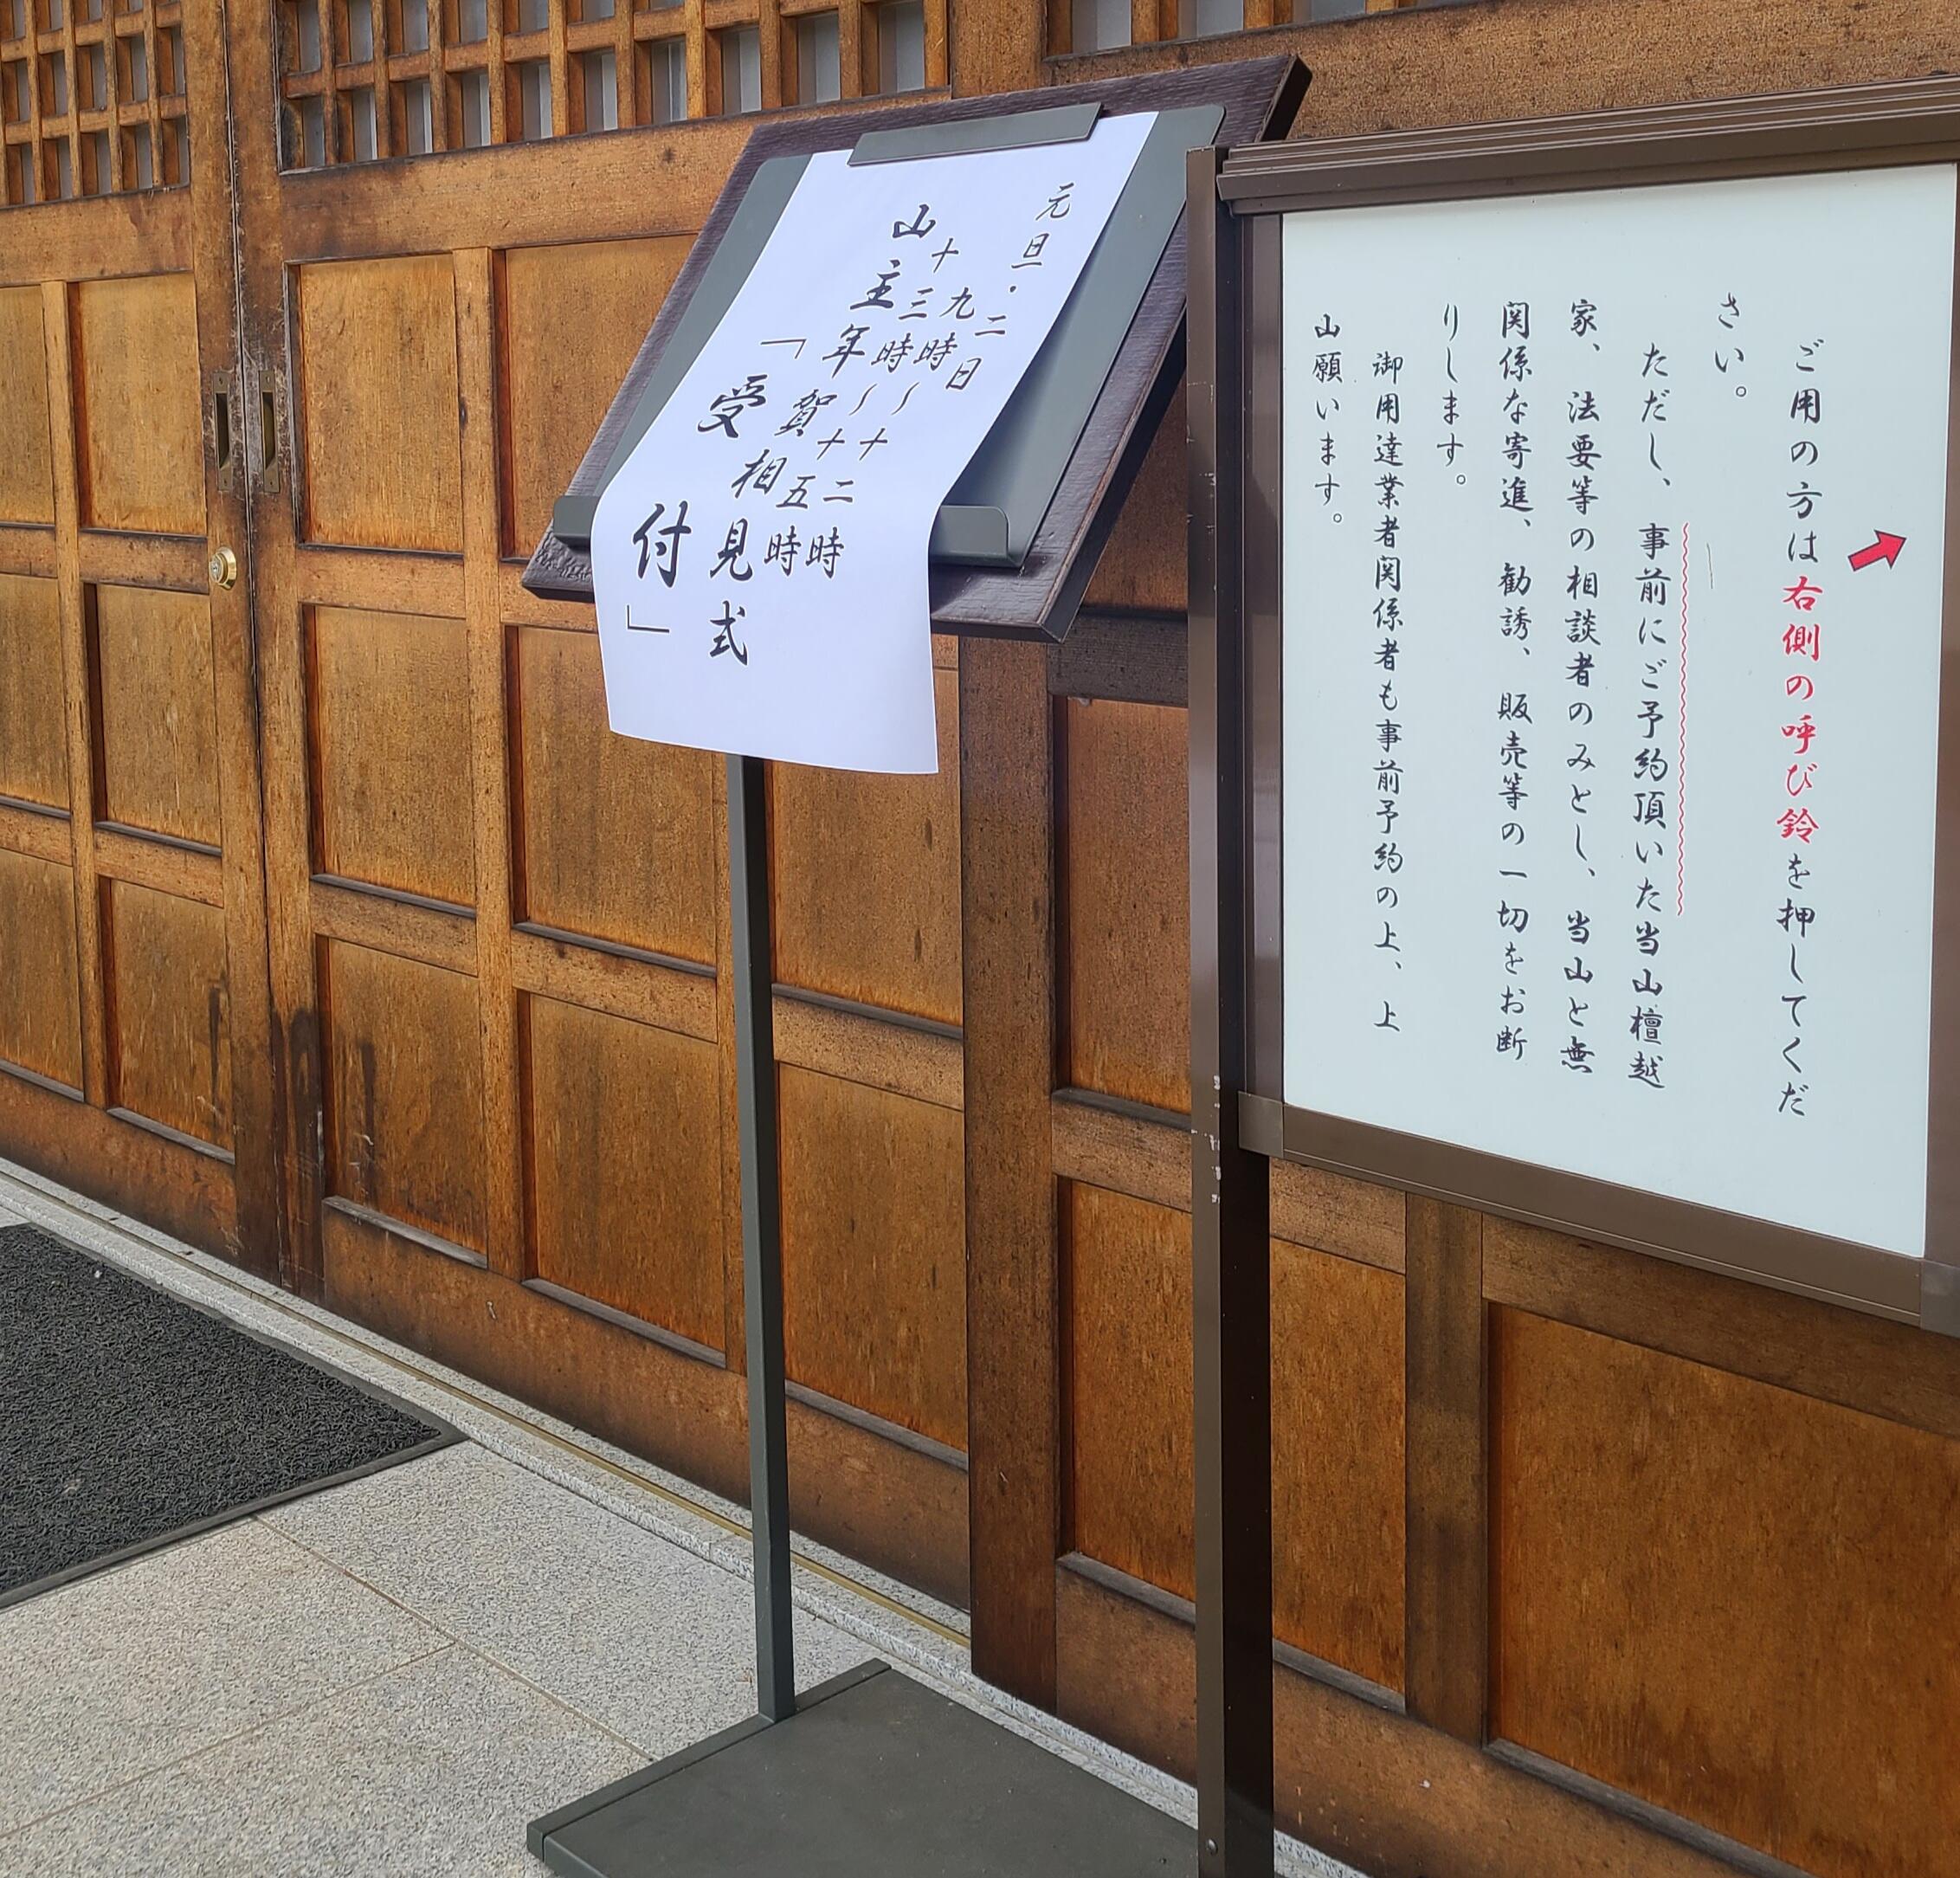 元旦・二日
九時～十二時
十三時～十五時
山主年賀相見式
「受付」
ご用の方は右側の呼び鈴を押してくだ
さい。
ただし、事前にご予約頂いた当山檀越
家、法要等の相談者のみとし、当山と無
関係な寄進、勧誘、販売等の一切をお断
りします。
御用達業者関係者も事前予約の上、上
山願います。